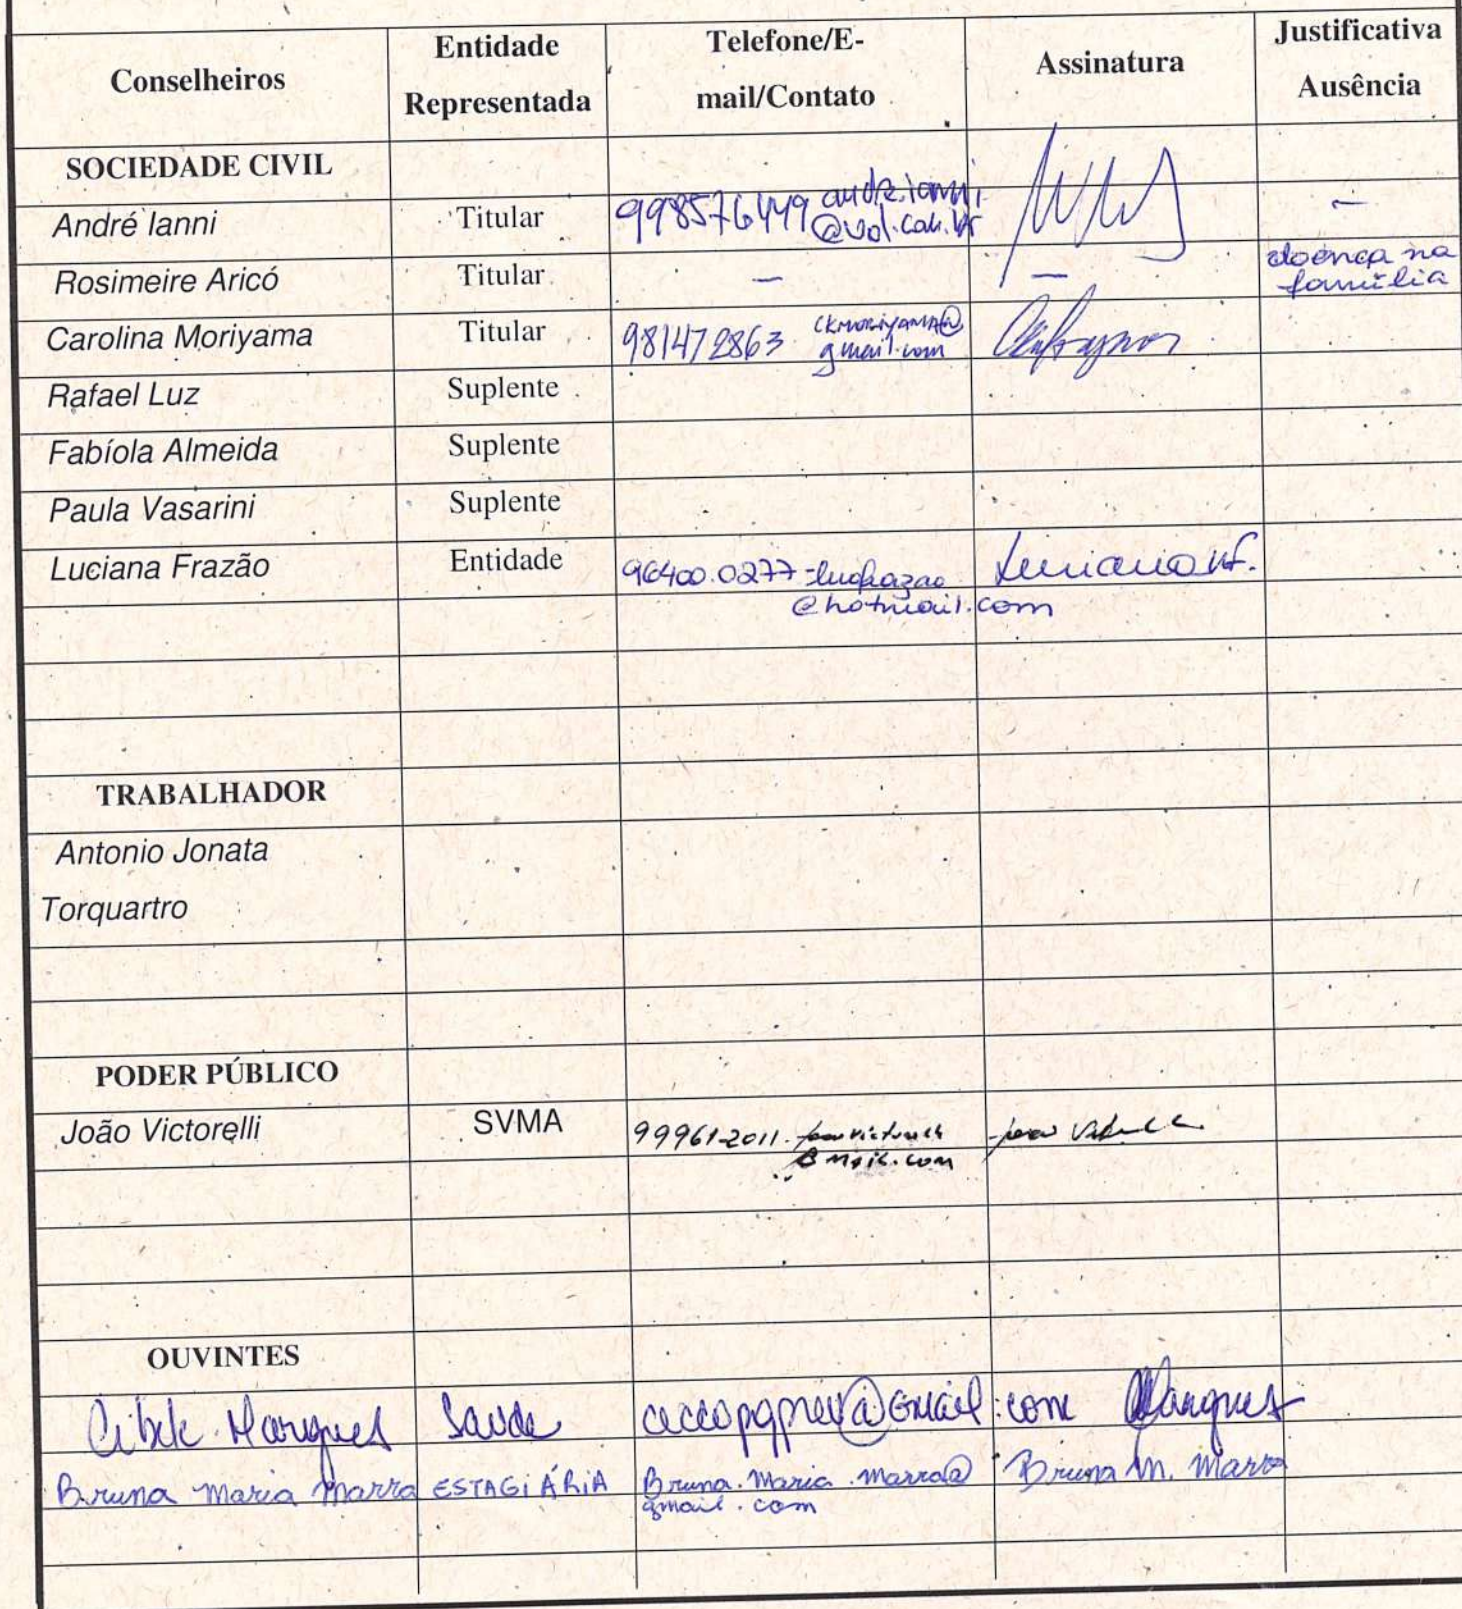 Conselheiros
Entidade
Representada
Telefone/E-
mail/Contato
Assinatura
Justificativa
Ausência
SOCIEDADE CIVIL
André Ianni Titular 998576449 andre.ianni
@uol.com.br —
Rosimeire Aricó Titular — — doença na
família
Carolina Moriyama Titular 981472863 ckmoriyama@
gmail.com
Rafael Luz Suplente
Fabíola Almeida Suplente
Paula Vasarini Suplente
Luciana Frazão Entidade 96400.0277 - lucfrazao
@hotmail.com
TRABALHADOR
Antonio Jonata
Torquartro
PODER PÚBLICO
João Victorelli SVMA 99961-2011.
OUVINTES
Cibele Marques Saúde @gmail.com Marques
Bruna Maria Marra ESTAGIÁRIA Bruna.Maria.Marra@ Bruna M. Marra
gmail.com